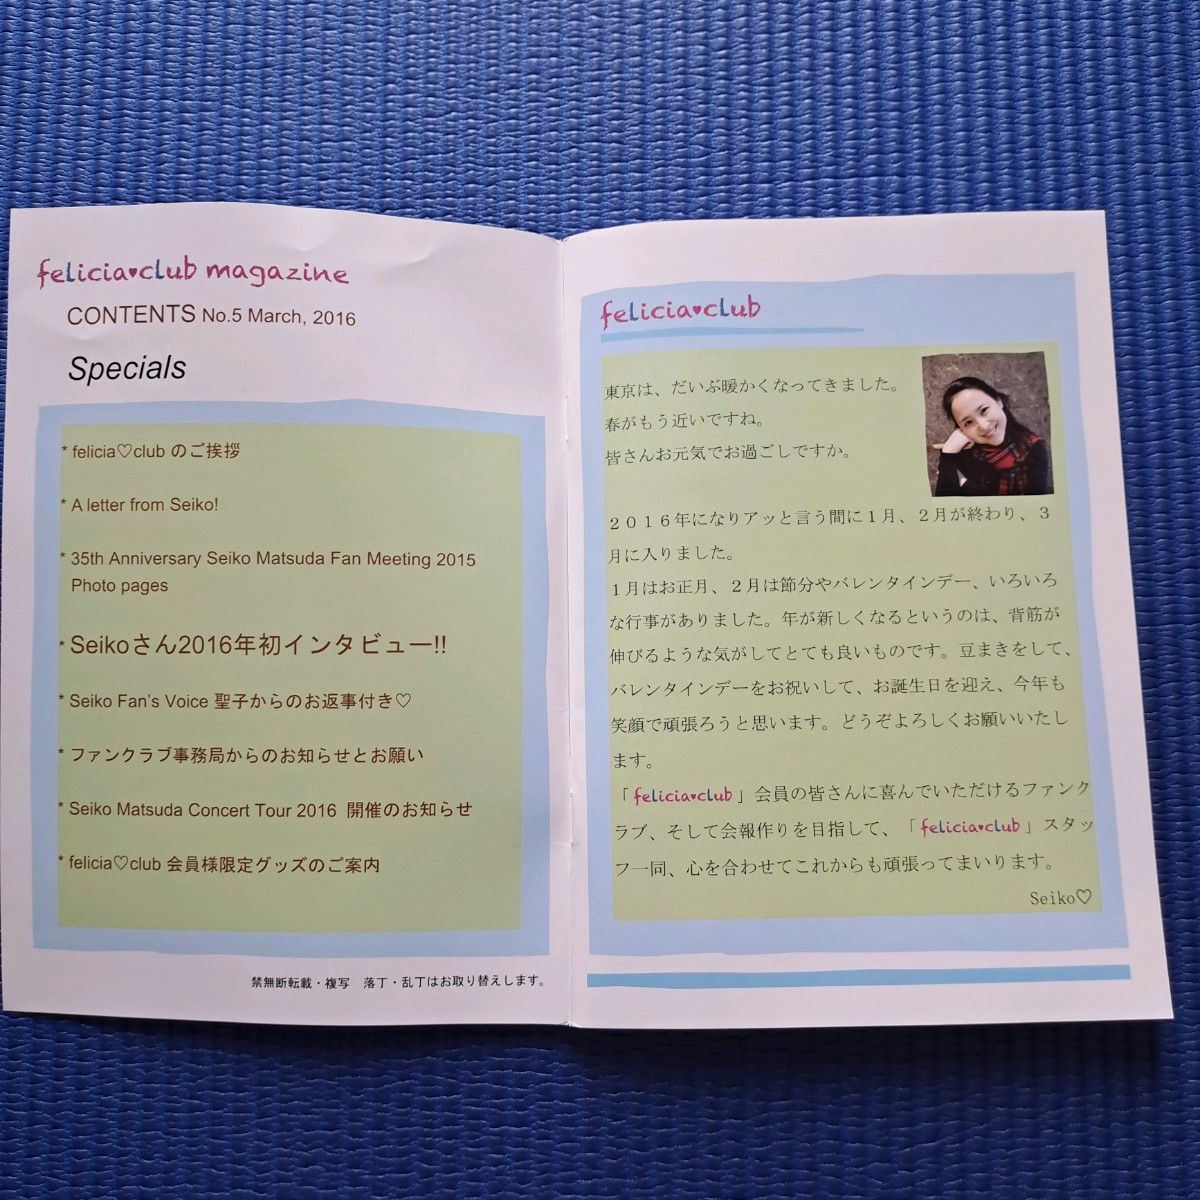 felicia♥club magazine
CONTENTS No.5 March, 2016
Specials
* felicia♡club のご挨拶
* A letter from Seiko!
* 35th Anniversary Seiko Matsuda Fan Meeting 2015
Photo pages
* Seikoさん2016年初インタビュー!!
* Seiko Fan's Voice 聖子からのお返事付き♡
* ファンクラブ事務局からのお知らせとお願い
* Seiko Matsuda Concert Tour 2016 開催のお知らせ
* felicia♡club 会員様限定グッズのご案内
禁無断転載・複写　落丁・乱丁はお取り替えします。
felicia♥club
東京は、だいぶ暖かくなってきました。
春がもう近いですね。
皆さんお元気でお過ごしですか。
２０１６年になりアッと言う間に１月、２月が終わり、３
月に入りました。
１月はお正月、２月は節分やバレンタインデー、いろいろ
な行事がありました。年が新しくなるというのは、背筋が
伸びるような気がしてとても良いものです。豆まきをして、
バレンタインデーをお祝いして、お誕生日を迎え、今年も
笑顔で頑張ろうと思います。どうぞよろしくお願いいたし
ます。
「felicia♥club」会員の皆さんに喜んでいただけるファンク
ラブ、そして会報作りを目指して、「felicia♥club」スタッ
フ一同、心を合わせてこれからも頑張ってまいります。
Seiko♡